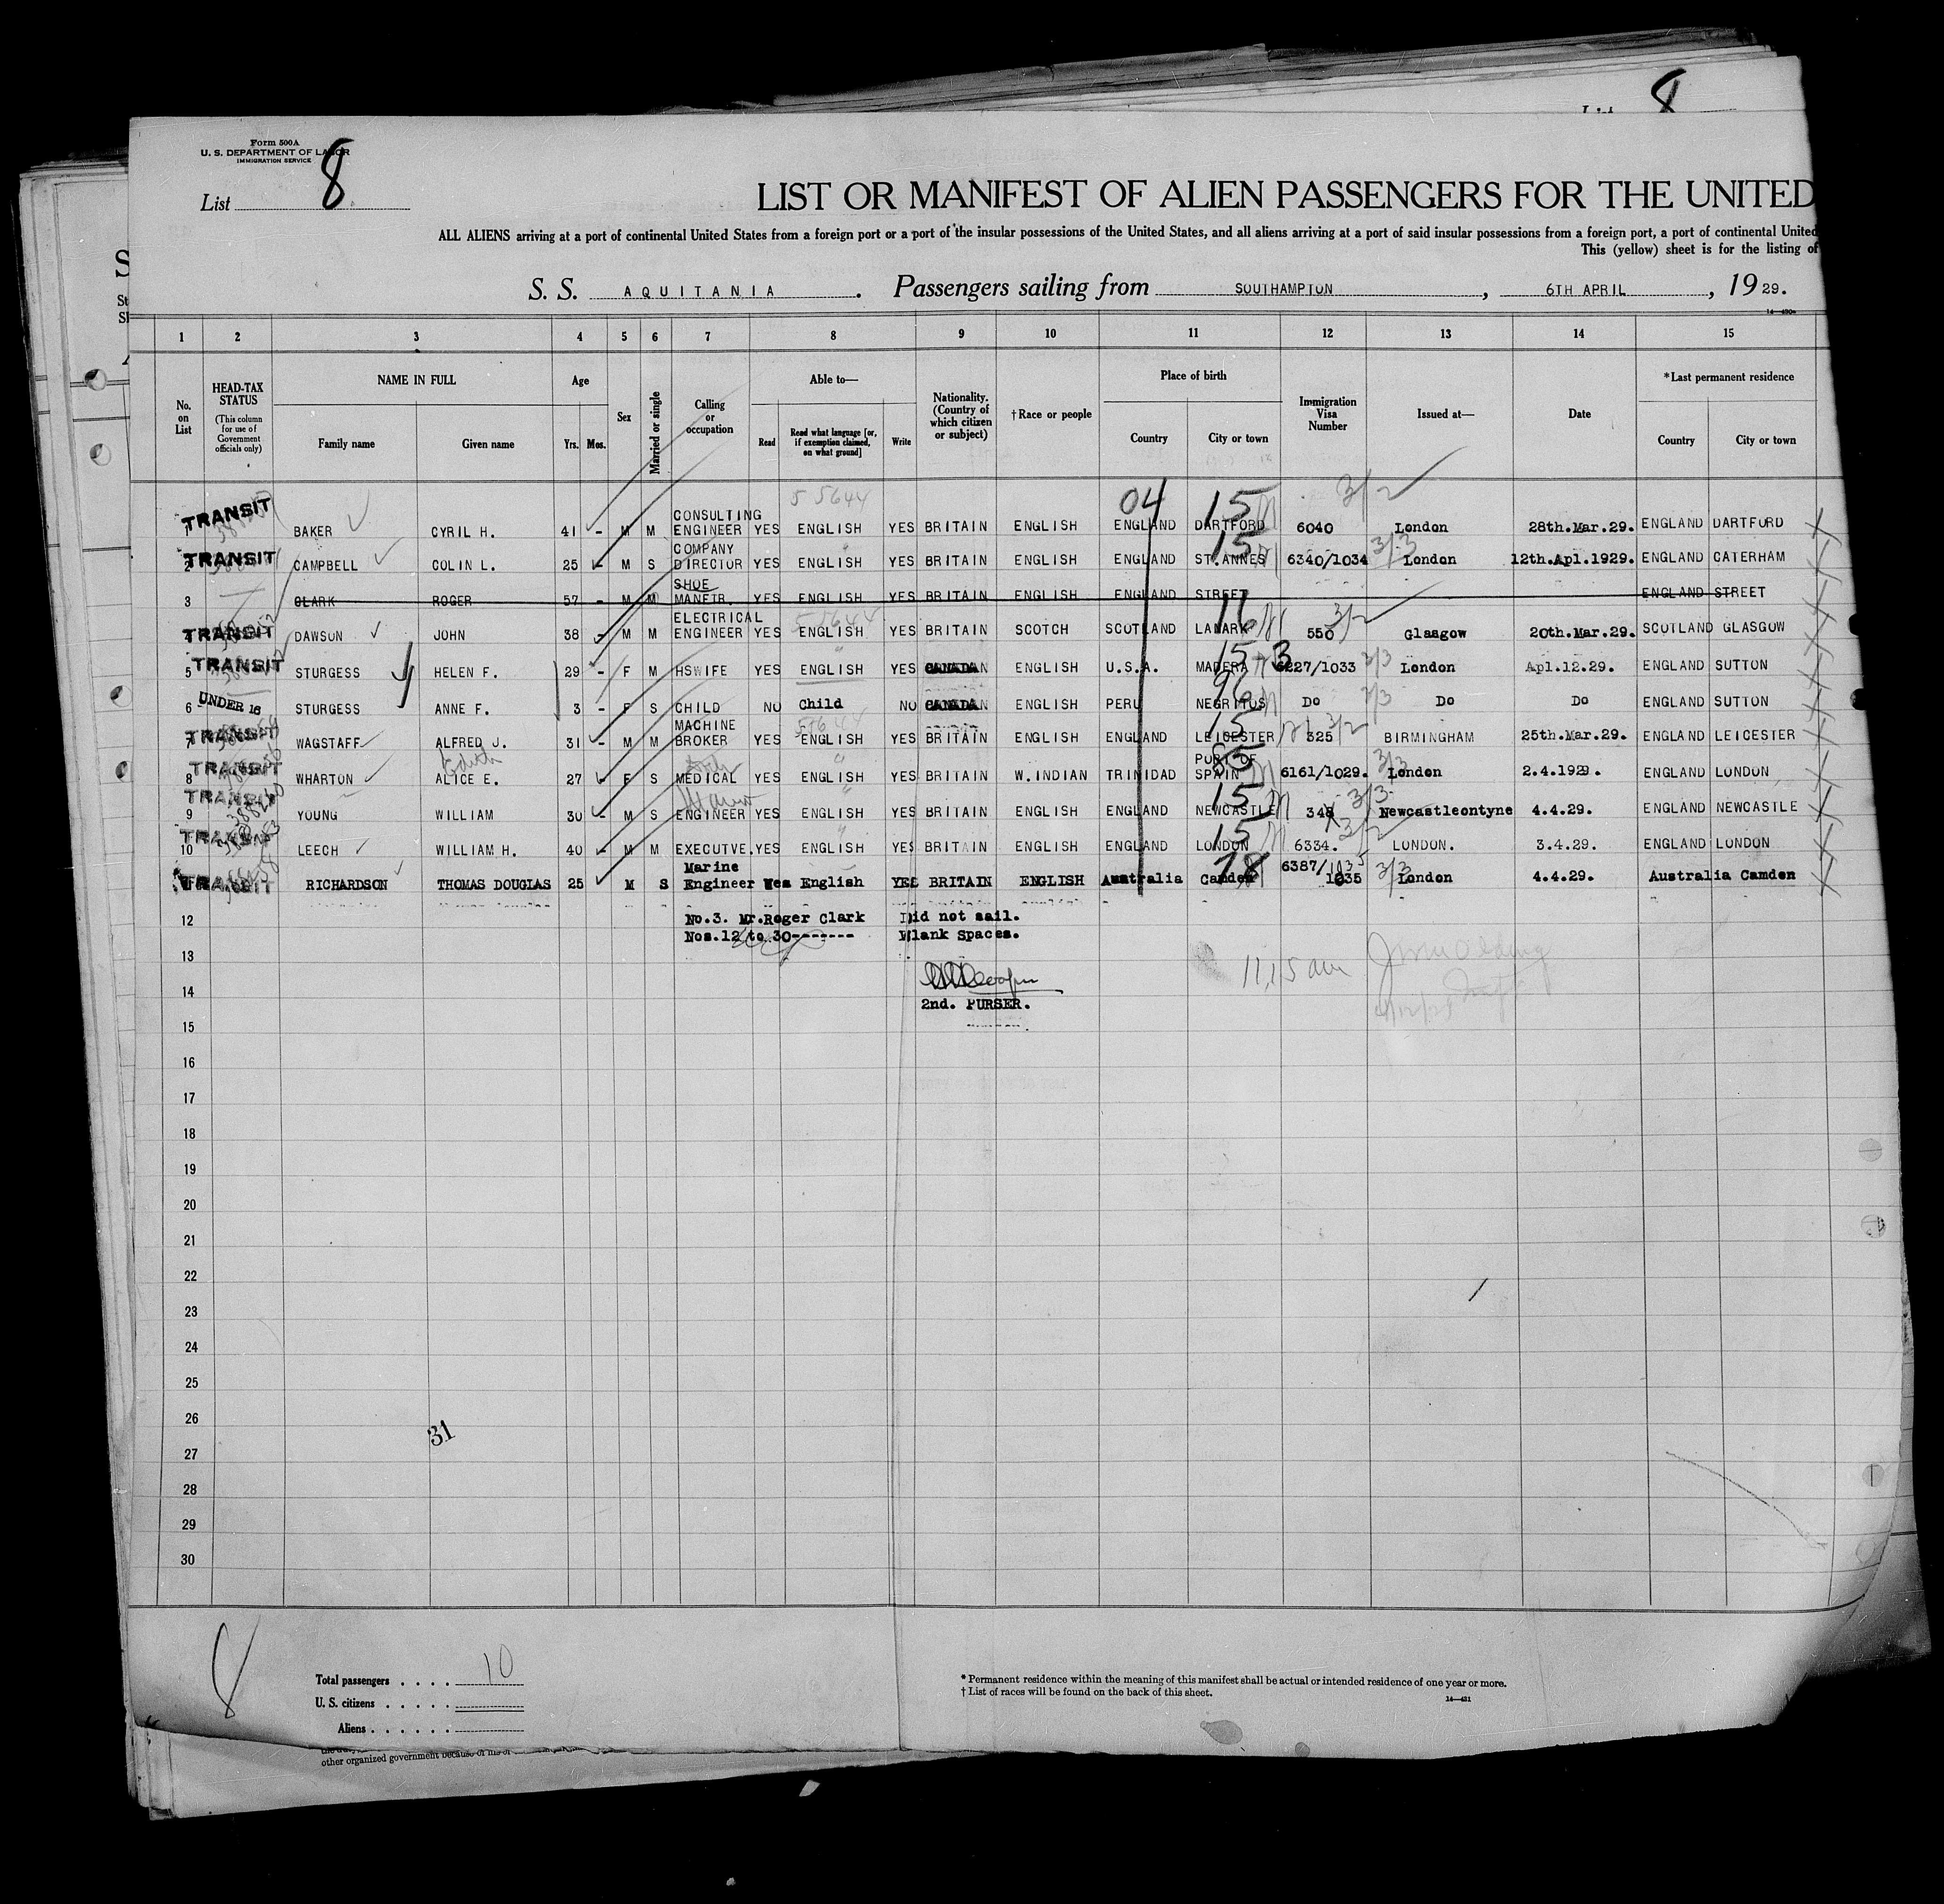 List 8
Form 500A
U. S. DEPARTMENT OF LABOR
IMMIGRATION SERVICE
List 8
LIST OR MANIFEST OF ALIEN PASSENGERS FOR THE UNITED
ALL ALIENS arriving at a port of continental United States from a foreign port or a port of the insular possessions of the United States, and all aliens arriving at a port of said insular possessions from a foreign port, a port of continental United
This (yellow) sheet is for the listing of
S. S. AQUITANIA. Passengers sailing from SOUTHAMPTON, 6TH APRIL, 19 29.
1 2 3 4 5 6 7 8 9 10 11 12 13 14 15
No. on List
HEAD-TAX STATUS (This column for use of Government officials only)
NAME IN FULL Family name Given name
Age Yrs. Mos.
Sex
Married or single
Calling or occupation
Able to— Read Read what language [or, if exemption claimed, on what ground] Write
Nationality. (Country of which citizen or subject)
†Race or people
Place of birth Country City or town
Immigration Visa Number
Issued at—
Date
*Last permanent residence Country City or town
55644 04 15 3/2
TRANSIT 1 BAKER CYRIL H. 41 - M M CONSULTING ENGINEER YES ENGLISH YES BRITAIN ENGLISH ENGLAND DARTFORD 6040 London 28th.Mar.29. ENGLAND DARTFORD
TRANSIT 2 CAMPBELL COLIN L. 25 - M S COMPANY DIRECTOR YES ENGLISH YES BRITAIN ENGLISH ENGLAND ST.ANNES 15 6340/1034 3/3 London 12th.Apl.1929. ENGLAND CATERHAM
3 CLARK ROGER 57 - M M SHOE MANFTR. YES ENGLISH YES BRITAIN ENGLISH ENGLAND STREET ENGLAND STREET
TRANSIT 4 DAWSON JOHN 38 - M M ELECTRICAL ENGINEER YES ENGLISH 55644 YES BRITAIN SCOTCH SCOTLAND LANARK 16 550 3/2 Glasgow 20th.Mar.29. SCOTLAND GLASGOW
TRANSIT 5 STURGESS HELEN F. 29 - F M HSWIFE YES ENGLISH YES CANADA ENGLISH U.S.A. MADERA 15 6227/1033 3/3 London Apl.12.29. ENGLAND SUTTON
UNDER 16 6 STURGESS ANNE F. 3 - F S CHILD NO Child NO CANADA ENGLISH PERU NEGRITOS 96 Do 3/3 Do Do ENGLAND SUTTON
TRANSIT 7 WAGSTAFF ALFRED J. 31 - M M MACHINE BROKER YES ENGLISH YES BRITAIN ENGLISH ENGLAND LEICESTER 15 325 3/2 BIRMINGHAM 25th.Mar.29. ENGLAND LEICESTER
TRANSIT 8 WHARTON ALICE E. Edith 27 - F S MEDICAL YES ENGLISH YES BRITAIN W.INDIAN TRINIDAD PORT OF SPAIN 85 6161/1029. 3/3 London 2.4.1929. ENGLAND LONDON
TRANSIT 9 YOUNG WILLIAM 30 - M S ENGINEER YES ENGLISH YES BRITAIN ENGLISH ENGLAND NEWCASTLE 15 348 3/3 Newcastleontyne 4.4.29. ENGLAND NEWCASTLE
TRANSIT 10 LEECH WILLIAM H. 40 - M M EXECUTVE. YES ENGLISH YES BRITAIN ENGLISH ENGLAND LONDON 15 6334. 3/2 LONDON. 3.4.29. ENGLAND LONDON
TRANSIT RICHARDSON THOMAS DOUGLAS 25 M S Marine Engineer Yes English YES BRITAIN ENGLISH Australia Camden 78 6387/1035 1035 3/3 London 4.4.29. Australia Camden
12 No.3. Mr.Roger Clark Did not sail.
Nos.12 to 30------- Blank Spaces.
13
11,15 am
14
2nd. PURSER.
15
16
17
18
19
20
21
22
23
24
25
26
31
27
28
29
30
8
Total passengers . . . . 10
U. S. citizens . . . . .
Aliens . . . . . .
* Permanent residence within the meaning of this manifest shall be actual or intended residence of one year or more.
† List of races will be found on the back of this sheet.
14—421
other organized government because of his or